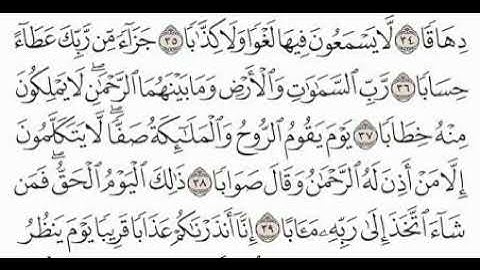 دِهَاقًا ٣٤ لَّا يَسْمَعُونَ فِيهَا لَغْوًا وَلَا كِذَّٰبًا ٣٥ جَزَآءً مِّن رَّبِّكَ عَطَآءً
حِسَابًا ٣٦ رَّبِّ ٱلسَّمَٰوَٰتِ وَٱلْأَرْضِ وَمَا بَيْنَهُمَا ٱلرَّحْمَٰنِ ۖ لَا يَمْلِكُونَ
مِنْهُ خِطَابًا ٣٧ يَوْمَ يَقُومُ ٱلرُّوحُ وَٱلْمَلَٰٓئِكَةُ صَفًّا ۖ لَّا يَتَكَلَّمُونَ
إِلَّا مَنْ أَذِنَ لَهُ ٱلرَّحْمَٰنُ وَقَالَ صَوَابًا ٣٨ ذَٰلِكَ ٱلْيَوْمُ ٱلْحَقُّ ۖ فَمَن
شَآءَ ٱتَّخَذَ إِلَىٰ رَبِّهِۦ مَـَٔابًا ٣٩ إِنَّآ أَنذَرْنَٰكُمْ عَذَابًا قَرِيبًا يَوْمَ يَنظُرُ